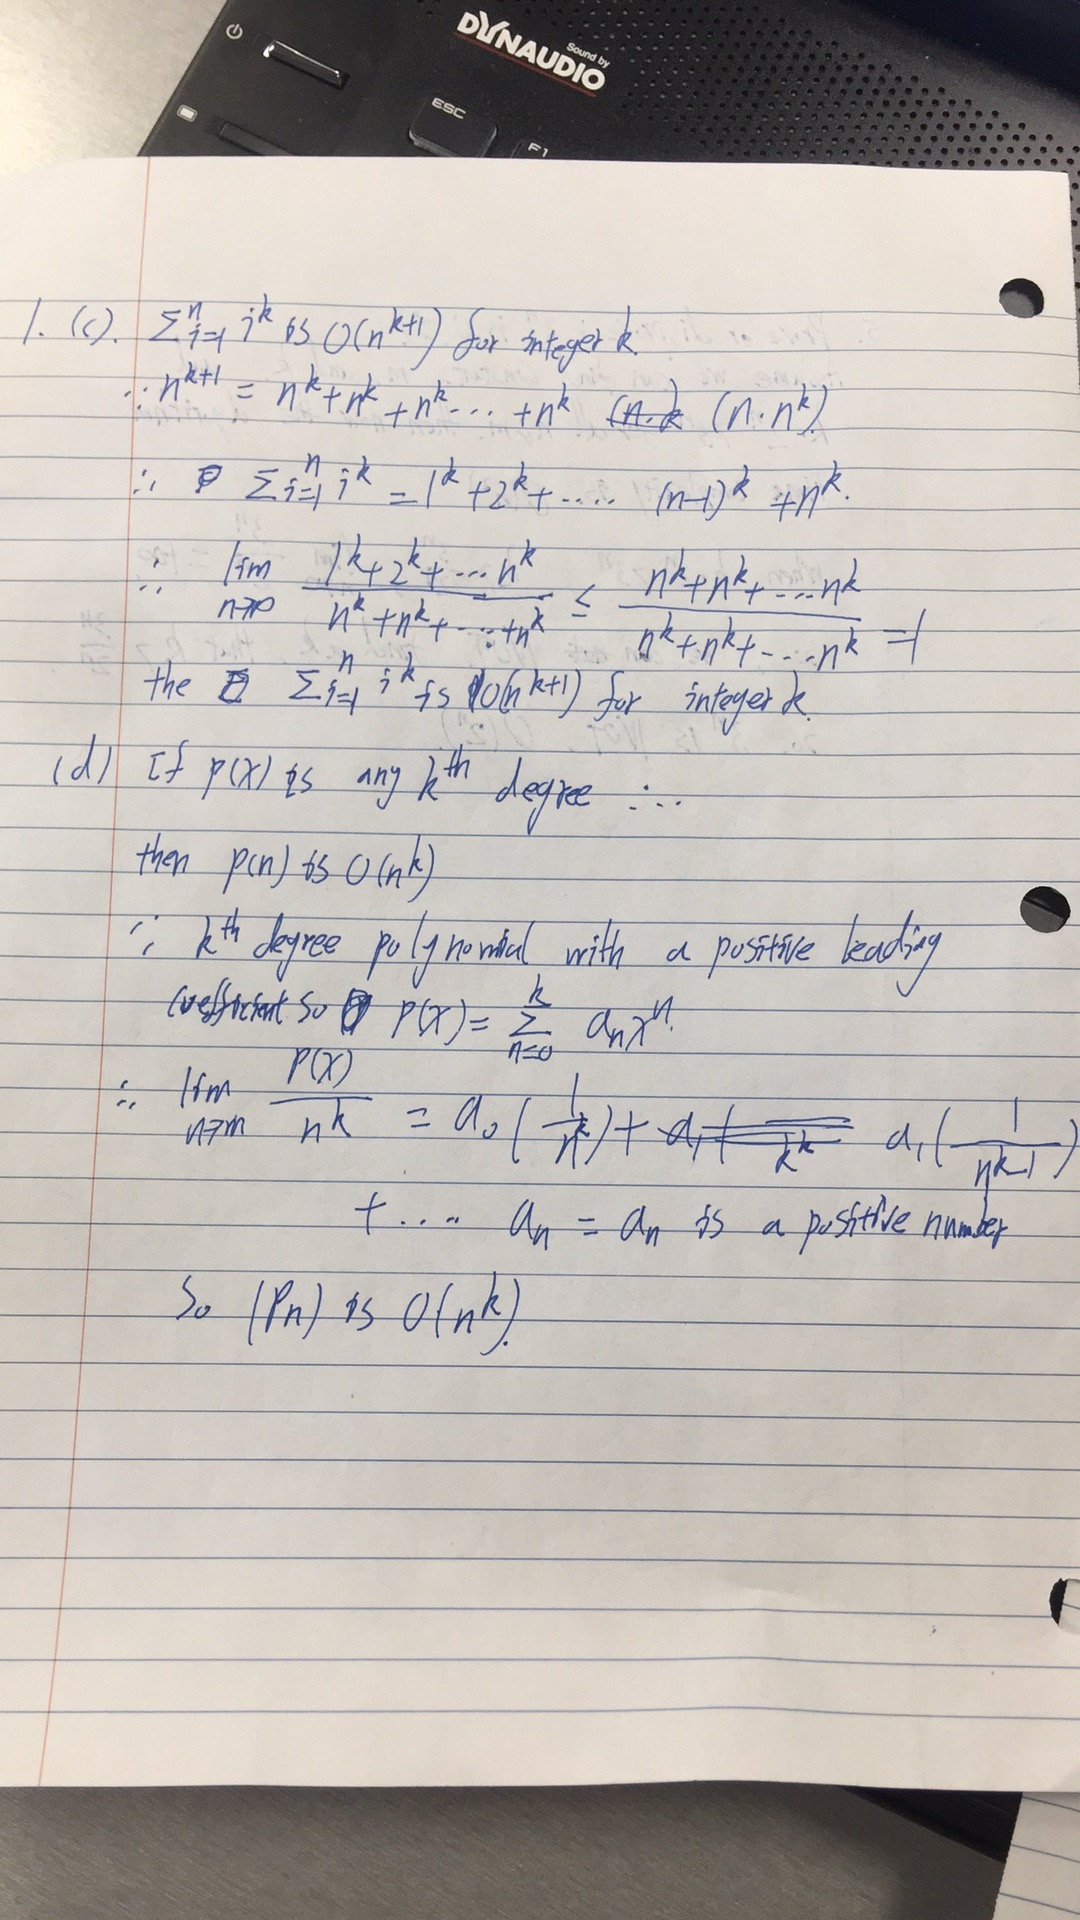 DYNAUDIO
Sound by
ESC
F1
1. (c). Σⁿᵢ₌₁ iᵏ is O(nᵏ⁺¹) for integer k.
∵ nᵏ⁺¹ = nᵏ+nᵏ+nᵏ.... +nᵏ (n·nᵏ).
∴ Σⁿᵢ₌₁ iᵏ = 1ᵏ+2ᵏ+..... (n-1)ᵏ +nᵏ.
∴ lim n→∞ (1ᵏ+2ᵏ+...nᵏ)/(nᵏ+nᵏ+...+nᵏ) ≤ (nᵏ+nᵏ+...nᵏ)/(nᵏ+nᵏ+...nᵏ) =1
the Σⁿᵢ₌₁ iᵏ is O(nᵏ⁺¹) for integer k.
(d) If p(x) is any kᵗʰ degree ....
then p(n) is O(nᵏ)
∵ kᵗʰ degree polynomial with a positive leading
coefficient so P(x)= Σᵏₙ₌₀ aₙxⁿ.
∴ lim n→∞ P(x)/nᵏ = a₀(1/nᵏ)+ a₁(1/nᵏ⁻¹)
+.... aₙ = aₙ is a positive number
So (Pn) is O(nᵏ).